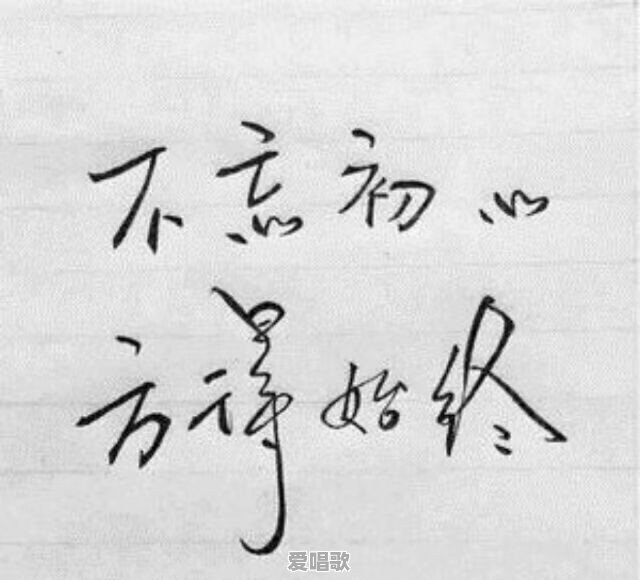 不忘初心
方得始终
爱唱歌